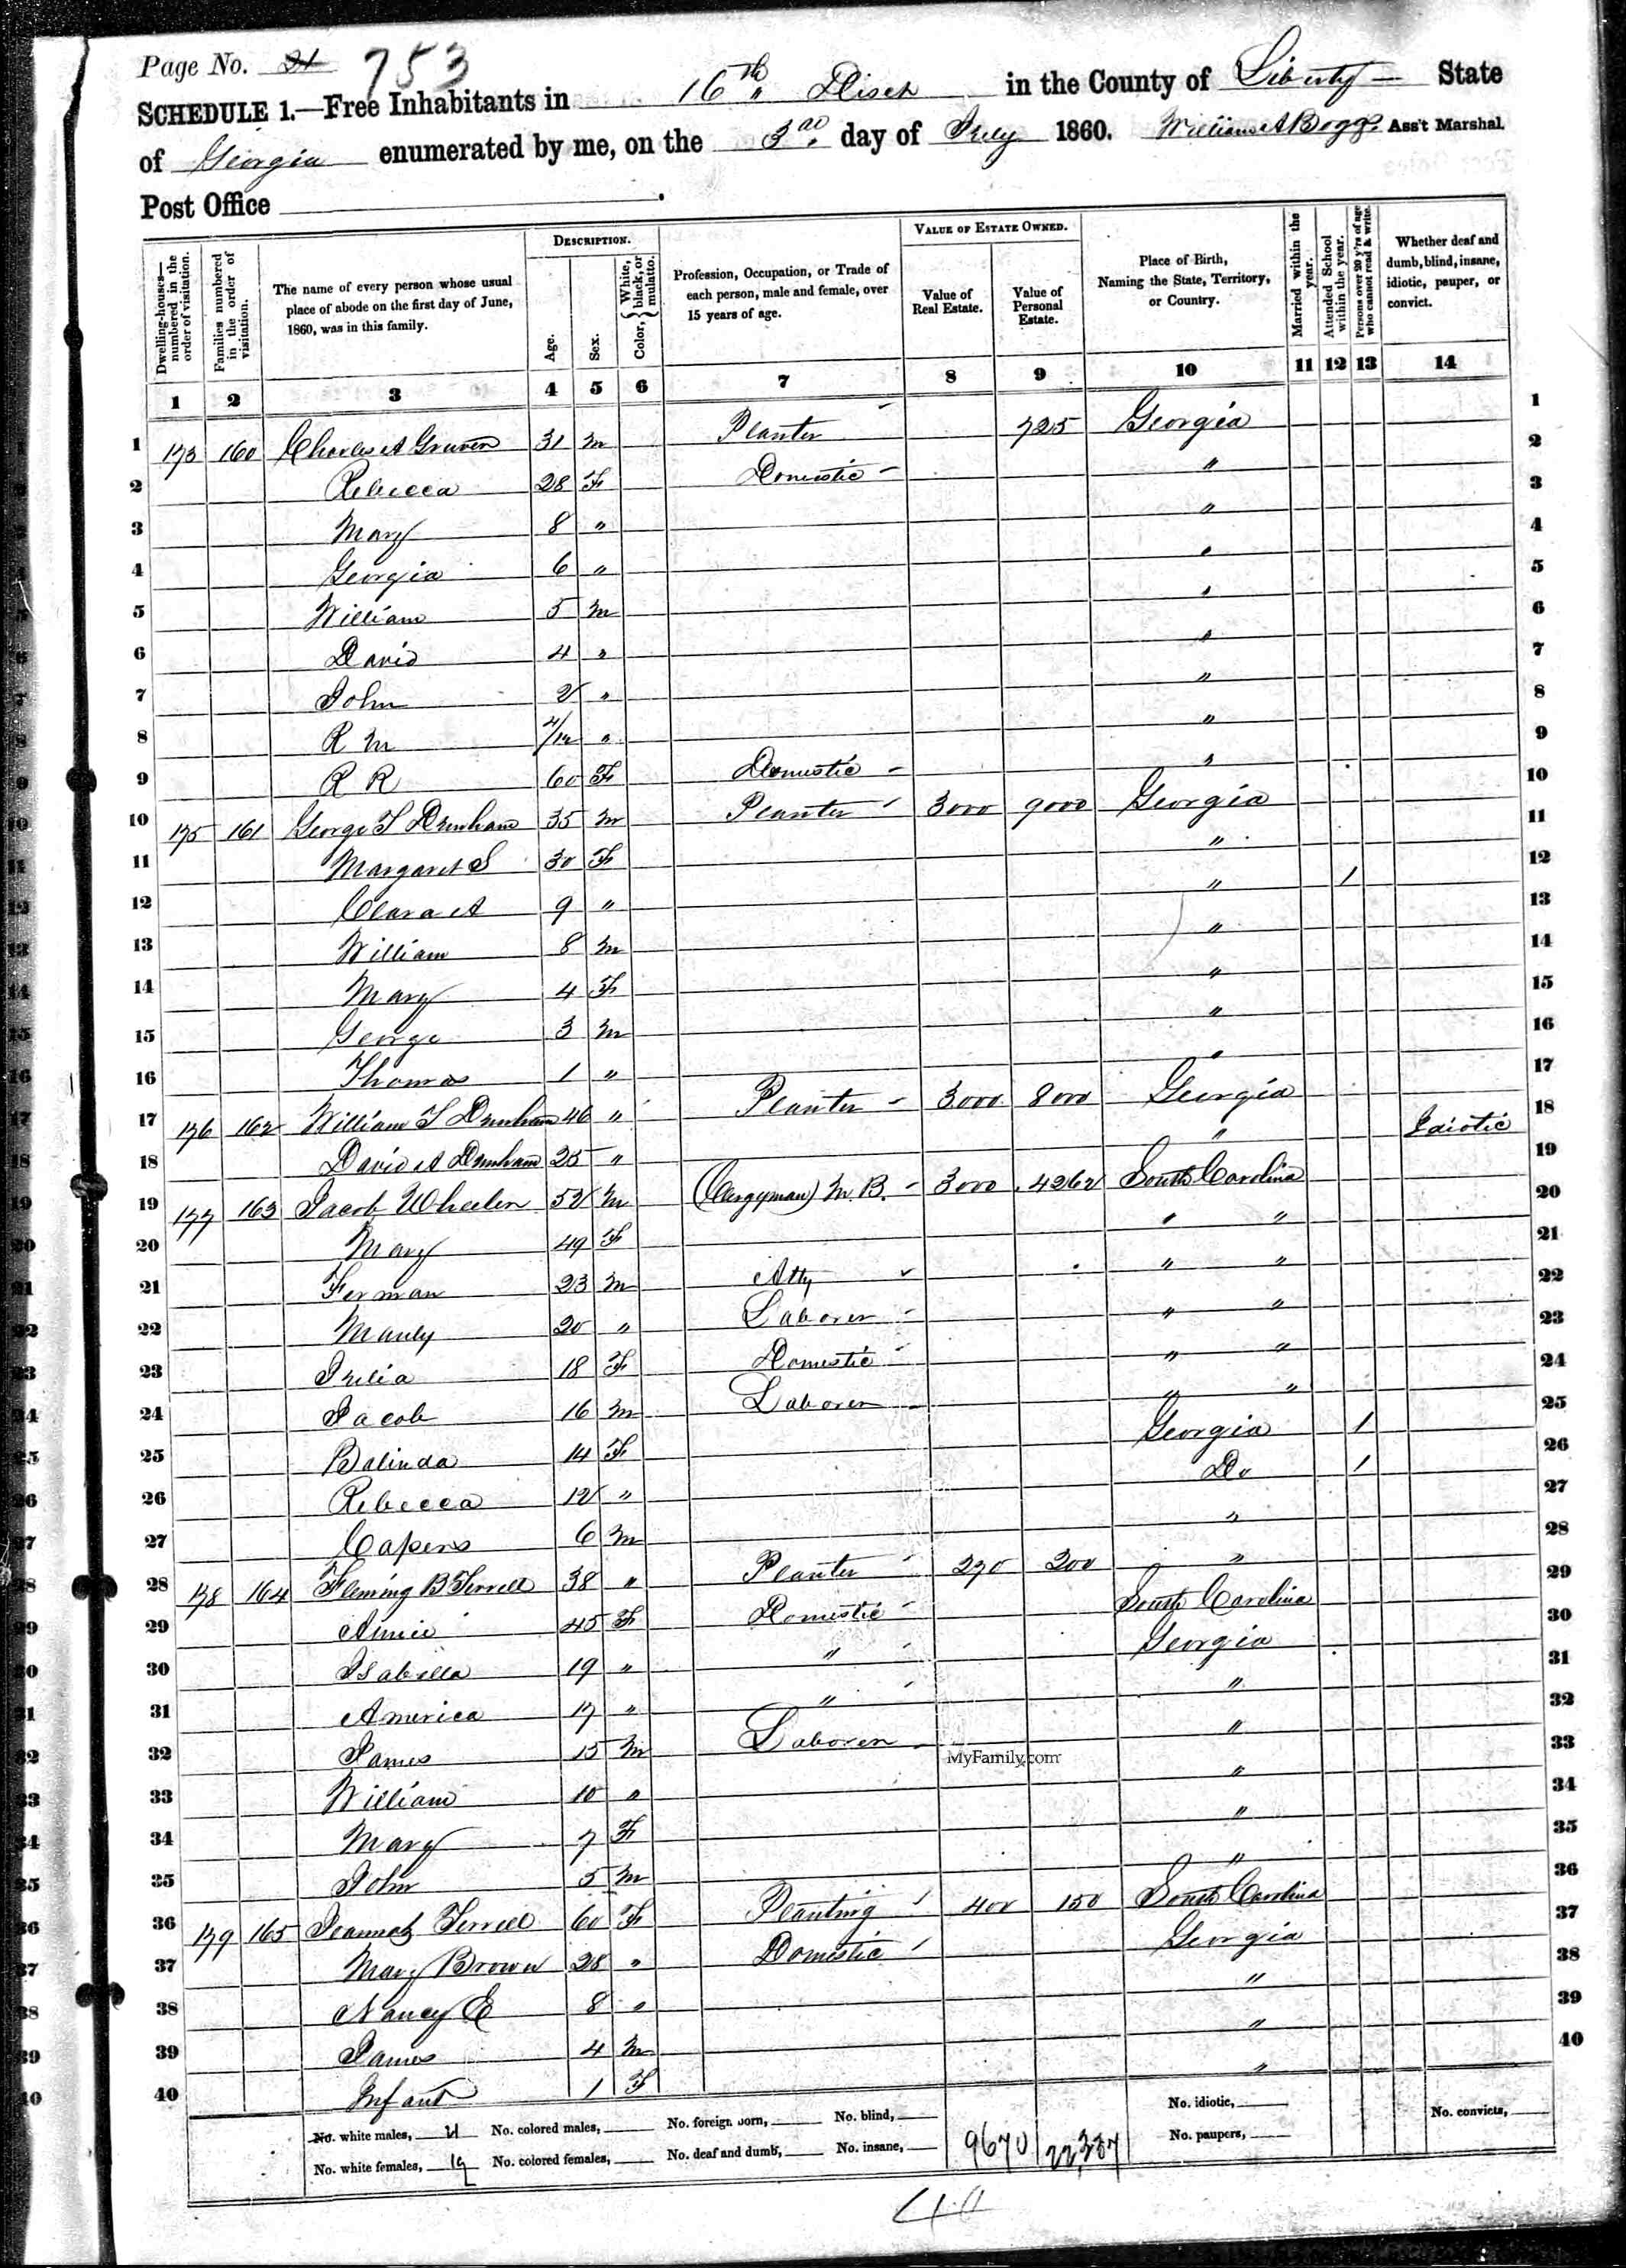 Page No. 21 753
SCHEDULE 1.—Free Inhabitants in 16th Disct in the County of Liberty State
of Georgia enumerated by me, on the 3rd day of July 1860. William A Boggs Ass't Marshal.
Post Office
Dwelling-houses—numbered in the order of visitation.
Families numbered in the order of visitation.
The name of every person whose usual place of abode on the first day of June, 1860, was in this family.
DESCRIPTION.
Age.
Sex.
Color, { White, black, or mulatto.
Profession, Occupation, or Trade of each person, male and female, over 15 years of age.
VALUE OF ESTATE OWNED.
Value of Real Estate.
Value of Personal Estate.
Place of Birth, Naming the State, Territory, or Country.
Married within the year.
Attended School within the year.
Persons over 20 y'rs of age who cannot read & write.
Whether deaf and dumb, blind, insane, idiotic, pauper, or convict.
1 2 3 4 5 6 7 8 9 10 11 12 13 14
1 173 160 Charles A 31 m Planter 725 Georgia 1
2 Rebecca 28 F Domestic " 2
3 Mary 8 " " 3
4 Georgia 6 " " 4
5 William 5 m " 5
6 David 4 " " 6
7 John 2 " " 7
8 R M 4/12 " " 8
9 R R 60 F Domestic " 9
10 175 161 George T Dunham 35 m Planter 3000 9000 Georgia 10
11 Margaret S 30 F " 11
12 Clara A 9 " " 1 12
13 William 8 m " 13
14 Mary 4 F " 14
15 George 3 m " 15
16 Thomas 1 " " 16
17 176 162 William T Dunham 46 " Planter 3000 8000 Georgia 17
18 David A Dunham 25 " " Idiotic 18
19 177 163 Jacob Wheeler 52 m (Clergyman) M B. 3000 4262 South Carolina 19
20 Mary 49 F " " 20
21 Ferman 23 m Atty " " 21
22 Manly 20 " Laborer " " 22
23 Julia 18 F Domestic " " 23
24 Jacob 16 m Laborer " " 24
25 Balinda 14 F Georgia 1 25
26 Rebecca 12 " Do 1 26
27 Capers 6 m " 27
28 178 164 Fleming B Terrell 38 " Planter 270 200 " 28
29 45 F Domestic South Carolina 29
30 Isabella 19 " " Georgia 30
31 America 17 " " " 31
32 James 15 m Laborer " 32
33 William 10 " " 33
34 Mary 7 F " 34
35 John 5 m " 35
36 179 165 Terrell 60 F Planting 400 150 South Carolina 36
37 Mary Brown 28 " Domestic Georgia 37
38 Nancy E 8 " " 38
39 James 4 m " 39
40 Infant 1 F " 40
MyFamily.com
No. white males, 21 No. colored males, No. foreign born, No. blind, No. idiotic, No. convicts,
No. white females, 19 No. colored females, No. deaf and dumb, No. insane, 9670 22,337 No. paupers,
40